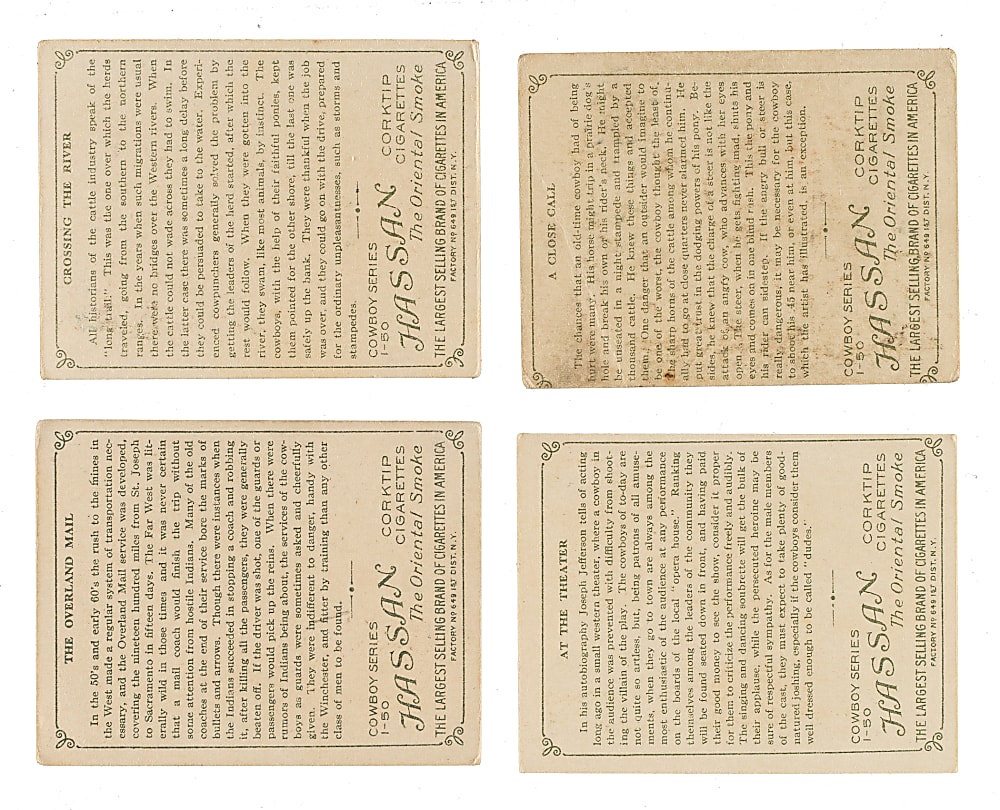 CROSSING THE RIVER
All historians of the cattle industry speak of the
"long trail." This was the one over which the herds
traveled, going from the southern to the northern
ranges. In the years when such migrations were usual
there were no bridges over the Western rivers. When
the cattle could not wade across they had to swim. In
the latter case there was sometimes a long delay before
they could be persuaded to take to the water. Experi-
enced cowpunchers generally solved the problem by
getting the leaders of the herd started, after which the
rest would follow. When they were gotten into the
river, they swam, like most animals, by instinct. The
cowboys, with the help of their faithful ponies, kept
them pointed for the other shore, till the last one was
safely up the bank. They were thankful when the job
was over, and they could go on with the drive, prepared
for the ordinary unpleasantnesses, such as storms and
stampedes.
COWBOY SERIES
1-50
HASSAN
CORKTIP
CIGARETTES
The Oriental Smoke
THE LARGEST SELLING BRAND OF CIGARETTES IN AMERICA
FACTORY No 649 1ST DIST. N.Y.
A CLOSE CALL
The chances that an old-time cowboy had of being
hurt were many. His horse might trip in a prairie dog's
hole and break his own or his rider's neck. He might
be unseated in a night stampede and trampled by a
thousand cattle. He knew these things and accepted
them. One danger that an outsider would imagine to
be one of the worst the cowboy thought the least of.
The sharp horns of the cattle among whom he continu-
ally had to go at close quarters never alarmed him. He
put great trust in the dodging powers of his pony. Be-
sides, he knew that the charge of a steer is not like the
attack of an angry cow, who advances with her eyes
open. The steer, when he gets fighting mad, shuts his
eyes and comes on in one blind rush. This the pony and
his rider can sidestep. If the angry bull or steer is
really dangerous, it may be necessary for the cowboy
to shoot his 45 near him, or even at him, but this case,
which the artist has illustrated, is an exception.
COWBOY SERIES
1-50
HASSAN
CORKTIP
CIGARETTES
The Oriental Smoke
THE LARGEST SELLING BRAND OF CIGARETTES IN AMERICA
FACTORY No 649 1ST DIST. N.Y.
THE OVERLAND MAIL
In the 50's and early 60's the rush to the mines in
the West made a regular system of transportation nec-
essary, and the Overland Mail service was developed,
covering the nineteen hundred miles from St. Joseph
to Sacramento in fifteen days. The Far West was lit-
erally wild in those times and it was never certain
that a mail coach would finish the trip without
some attention from hostile Indians. Many of the old
coaches at the end of their service bore the marks of
bullets and arrows. Though there were instances when
the Indians succeeded in stopping a coach and robbing
it, after killing all the passengers, they were generally
beaten off. If the driver was shot, one of the guards or
passengers would pick up the reins. When there were
rumors of Indians being about, the services of the cow-
boys as guards were sometimes asked and cheerfully
given. They were indifferent to danger, handy with
the Winchester, and fitter by training than any other
class of men to be found.
COWBOY SERIES
1-50
HASSAN
CORKTIP
CIGARETTES
The Oriental Smoke
THE LARGEST SELLING BRAND OF CIGARETTES IN AMERICA
FACTORY No 649 1ST DIST. N.Y.
AT THE THEATER
In his autobiography Joseph Jefferson tells of acting
long ago in a small western theater, where a cowboy in
the audience was prevented with difficulty from shoot-
ing the villain of the play. The cowboys of to-day are
not quite so artless, but, being patrons of all amuse-
ments, when they go to town are always among the
most enthusiastic of the audience at any performance
on the boards of the local "opera house." Ranking
themselves among the leaders of the community they
will be found seated down in front, and having paid
their good money to see the show, consider it proper
for them to criticize the performance freely and audibly.
The singing and dancing soubrette will get the bulk of
their applause, while the persecuted heroine may be
sure of respectful sympathy. As for the male members
of the cast, they must expect to take plenty of good-
natured joshing, especially if the cowboys consider them
well dressed enough to be called "dudes."
COWBOY SERIES
1-50
HASSAN
CORKTIP
CIGARETTES
The Oriental Smoke
THE LARGEST SELLING BRAND OF CIGARETTES IN AMERICA
FACTORY No 649 1ST DIST. N.Y.